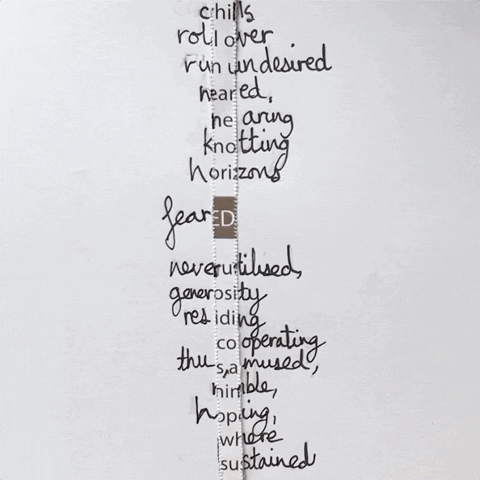 chills
roll over
run undesired
neared,
nearing
knotting
horizons
fearED
never utilised,
generosity
residing
cooperating
thus, amused,
nimble,
hoping,
where
sustained